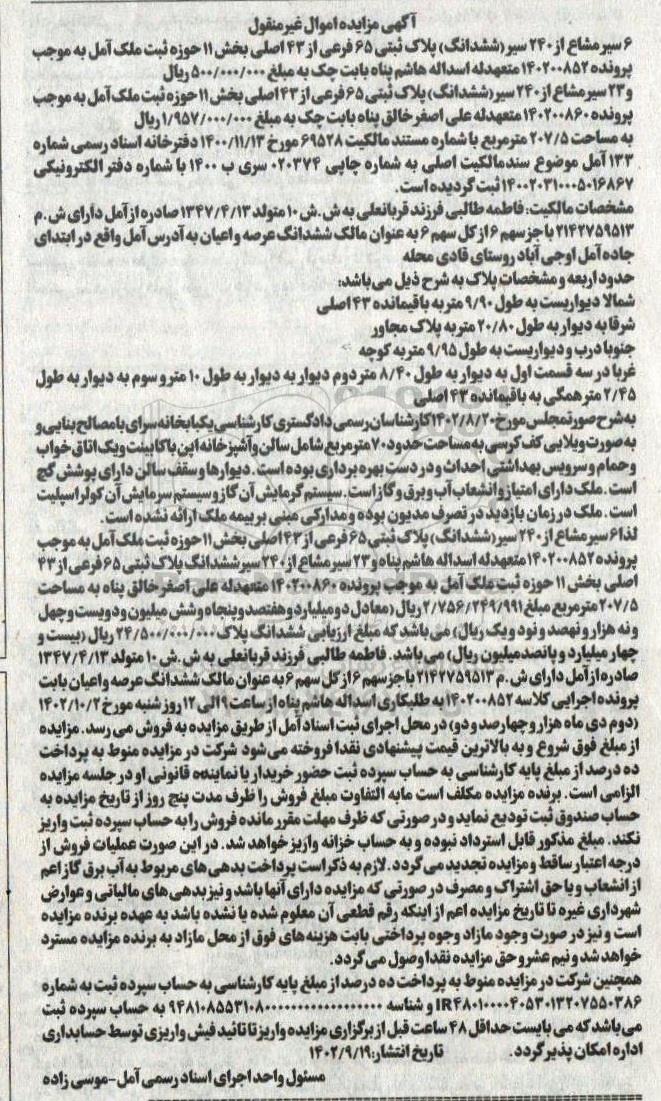 آگهی مزایده اموال غیرمنقول
۶ سیر مشاع از ۲۴۰ سیر (ششدانگ) پلاک ثبتی ۶۵ فرعی از ۴۳ اصلی بخش ۱۱ حوزه ثبت ملک آمل به موجب
پرونده ۱۴۰۲۰۰۸۵۲ متعهدله اسداله هاشم پناه بابت چک به مبلغ ۵۰۰/۰۰۰/۰۰۰ ریال
و ۲۳ سیر مشاع از ۲۴۰ سیر (ششدانگ) پلاک ثبتی ۶۵ فرعی از ۴۳ اصلی بخش ۱۱ حوزه ثبت ملک آمل به موجب
پرونده ۱۴۰۲۰۰۸۶۰ متعهدله علی اصغر خالق پناه بابت چک به مبلغ ۱/۹۵۷/۰۰۰/۰۰۰ ریال
به مساحت ۲۰۷/۵ مترمربع با شماره مستند مالکیت ۶۹۵۲۸ مورخ ۱۴۰۰/۱۱/۱۳ دفترخانه اسناد رسمی شماره
۱۳۳ آمل موضوع سندمالکیت اصلی به شماره چاپی ۰۲۰۳۷۴ سری ب ۱۴۰۰ با شماره دفتر الکترونیکی
۱۴۰۰۲۰۳۱۰۰۰۵۰۱۶۸۶۷ ثبت گردیده است.
مشخصات مالکیت: فاطمه طالبی فرزند قربانعلی به ش.ش ۱۰ متولد ۱۳۴۷/۴/۱۳ صادره از آمل دارای ش.م
۲۱۴۲۷۵۹۵۱۳ با جز سهم ۶ از کل سهم ۶ به عنوان مالک ششدانگ عرصه و اعیان به آدرس آمل واقع در ابتدای
جاده آمل اوجی آباد روستای قادی محله
حدود اربعه و مشخصات پلاک به شرح ذیل می باشد:
شمالا دیواریست به طول ۹/۹۰ متر به باقیمانده ۴۳ اصلی
شرقا به دیوار به طول ۲۰/۸۰ متر به پلاک مجاور
جنوبا درب و دیواریست به طول ۹/۹۵ متر به کوچه
غربا در سه قسمت اول به دیوار به طول ۸/۴۰ متر دوم دیوار به دیوار به طول ۱۰ متر و سوم به دیوار به طول
۲/۴۵ متر همگی به باقیمانده ۴۳ اصلی
به شرح صورتمجلس مورخ ۱۴۰۲/۸/۲۰ کارشناسان رسمی دادگستری کارشناسی یکبابخانه سرای با مصالح بنایی و
به صورت ویلایی کف کرسی به مساحت حدود ۷۰ متر مربع شامل سالن و آشپزخانه اپن با کابینت و یک اتاق خواب
و حمام و سرویس بهداشتی احداث و در دست بهره برداری بوده است. دیوارها و سقف سالن دارای پوشش گچ
است. ملک دارای امتیاز و انشعاب آب و برق و گاز است. سیستم گرمایش آن گاز و سیستم سرمایش آن کولر اسپلیت
است. ملک در زمان بازدید در تصرف مدیون بوده و مدارکی مبنی بر بیمه ملک ارائه نشده است.
لذا ۶ سیر مشاع از ۲۴۰ سیر (ششدانگ) پلاک ثبتی ۶۵ فرعی از ۴۳ اصلی بخش ۱۱ حوزه ثبت ملک آمل به موجب
پرونده ۱۴۰۲۰۰۸۵۲ متعهدله اسداله هاشم پناه و ۲۳ سیر مشاع از ۲۴۰ سیر ششدانگ پلاک ثبتی ۶۵ فرعی از ۴۳
اصلی بخش ۱۱ حوزه ثبت ملک آمل به موجب پرونده ۱۴۰۲۰۰۸۶۰ متعهدله علی اصغر خالق پناه به مساحت
۲۰۷/۵ متر مربع مبلغ ۲/۷۵۶/۲۴۹/۹۹۱ ریال (معادل دو میلیارد و هفتصد و پنجاه و شش میلیون و دویست و چهل
و نه هزار و نهصد و نود و یک ریال) می باشد که مبلغ ارزیابی ششدانگ پلاک ۲۴/۵۰۰/۰۰۰/۰۰۰ ریال (بیست و
چهار میلیارد و پانصد میلیون ریال) می باشد. فاطمه طالبی فرزند قربانعلی به ش.ش ۱۰ متولد ۱۳۴۷/۴/۱۳
صادره از آمل دارای ش.م ۲۱۴۲۷۵۹۵۱۳ با جز سهم ۶ از کل سهم ۶ به عنوان مالک ششدانگ عرصه و اعیان بابت
پرونده اجرایی کلاسه ۱۴۰۲۰۰۸۵۲ به طلبکاری اسداله هاشم پناه از ساعت ۹ الی ۱۲ روز شنبه مورخ ۱۴۰۲/۱۰/۲
(دوم دی ماه هزار و چهارصد و دو) در محل اجرای ثبت اسناد آمل از طریق مزایده به فروش می رسد. مزایده
از مبلغ فوق شروع و به بالاترین قیمت پیشنهادی نقدا فروخته می شود شرکت در مزایده منوط به پرداخت
ده درصد از مبلغ پایه کارشناسی به حساب سپرده ثبت حضور خریدار یا نماینده قانونی او در جلسه مزایده
الزامی است. برنده مزایده مکلف است مابه التفاوت مبلغ فروش را ظرف مدت پنج روز از تاریخ مزایده به
حساب صندوق ثبت تودیع نماید و در صورتی که ظرف مهلت مقرر مانده فروش را به حساب سپرده ثبت واریز
نکند. مبلغ مذکور قابل استرداد نبوده و به حساب خزانه واریز خواهد شد. در این صورت عملیات فروش از
درجه اعتبار ساقط و مزایده تجدید می گردد. لازم به ذکر است پرداخت بدهی های مربوط به آب برق گاز اعم
از انشعاب و یا حق اشتراک و مصرف در صورتی که مزایده دارای آنها باشد و نیز بدهی های مالیاتی و عوارض
شهرداری غیره تا تاریخ مزایده اعم از اینکه رقم قطعی آن معلوم شده یا نشده باشد به عهده برنده مزایده
است و نیز در صورت وجود مازاد وجوه پرداختی بابت هزینه های فوق از محل مازاد به برنده مزایده مسترد
خواهد شد و نیم عشر و حق مزایده نقدا وصول می گردد.
همچنین شرکت در مزایده منوط به پرداخت ده درصد از مبلغ پایه کارشناسی به حساب سپرده ثبت به شماره
IR۴۸۰۱۰۰۰۰۴۰۵۳۰۱۳۲۰۷۵۵۰۳۸۶ و شناسه ۹۴۸۱۰۸۵۵۳۱۰۸۰۰۰۰۰۰۰۰۰۰۰۰۰۰۰۰۰ به حساب سپرده ثبت
می باشد که می بایست حداقل ۴۸ ساعت قبل از برگزاری مزایده واریز تا تائید فیش واریزی توسط حسابداری
اداره امکان پذیر گردد. تاریخ انتشار: ۱۴۰۲/۹/۱۹
مسئول واحد اجرای اسناد رسمی آمل - موسی زاده